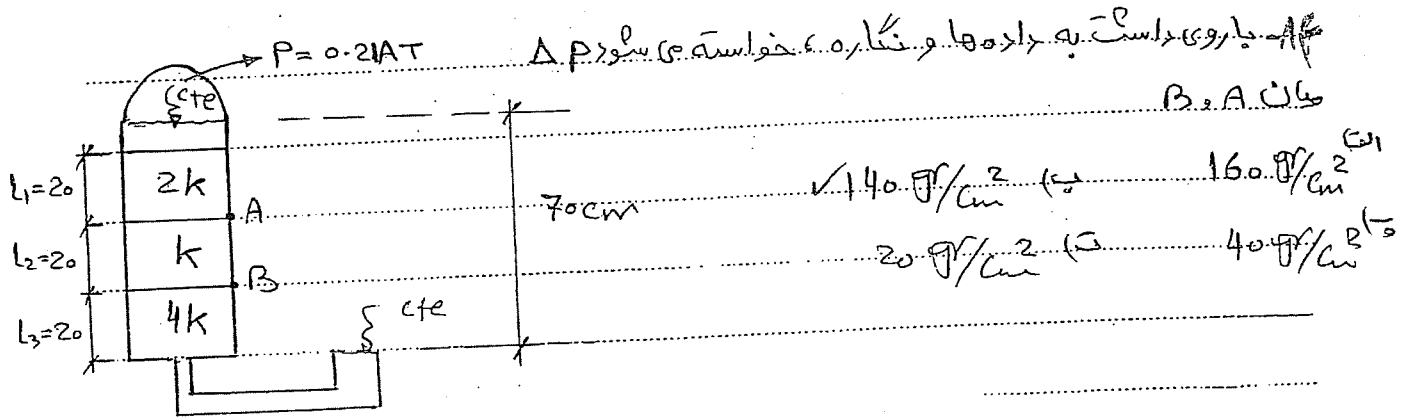 ۸۴- با روی داشت به داده‌ها و نگاره، خواسته می‌شود Δp
میان A و B
الف) 160 gr/cm² ب) 140 gr/cm² ✓
پ) 40 gr/cm³ ت) 20 gr/cm²
P= 0.21AT
cte
L₁=20
2k
A
L₂=20
k
B
L₃=20
4k
70cm
cte